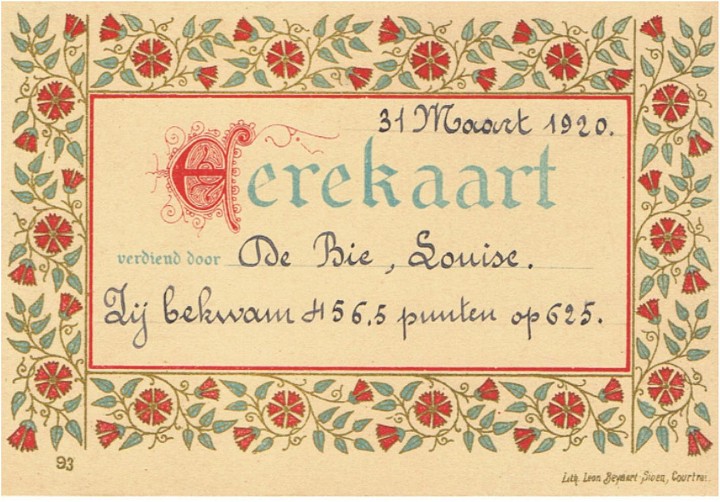 31 Maart 1920.
Eerekaart
verdiend door De Bie, Louise.
Zij bekwam 456,5 punten op 625.
93
Lith. Leon Beyaert-Sioen, Courtrai.